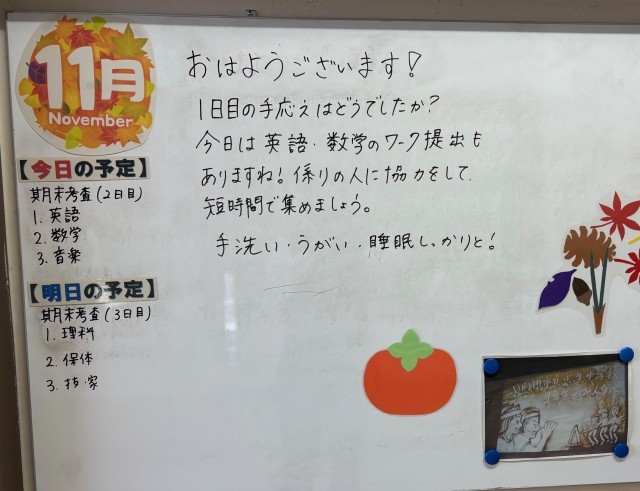 11月
November
【今日の予定】
期末考査(2日目)
1. 英語
2. 数学
3. 音楽
【明日の予定】
期末考査(3日目)
1. 理科
2. 保体
3. 技・家
おはようございます!
1日目の手応えはどうでしたか?
今日は英語・数学のワーク提出も
ありますね!係りの人に協力をして、
短時間で集めましょう。
手洗い・うがい・睡眠しっかりと!